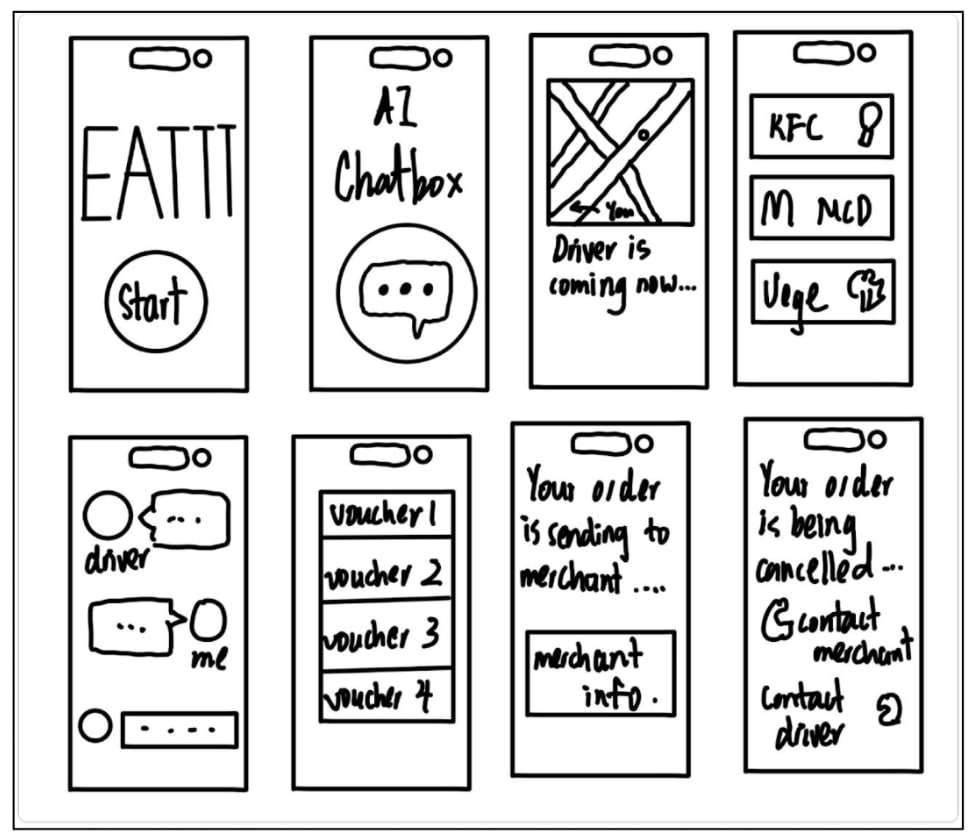 EATTT
Start
AI
Chatbox
You
Driver is
coming now...
KFC
M MCD
Vege
driver
me
voucher 1
voucher 2
voucher 3
voucher 4
Your order
is sending to
merchant ....
merchant
info.
Your order
is being
cancelled...
contact
merchant
contact
driver